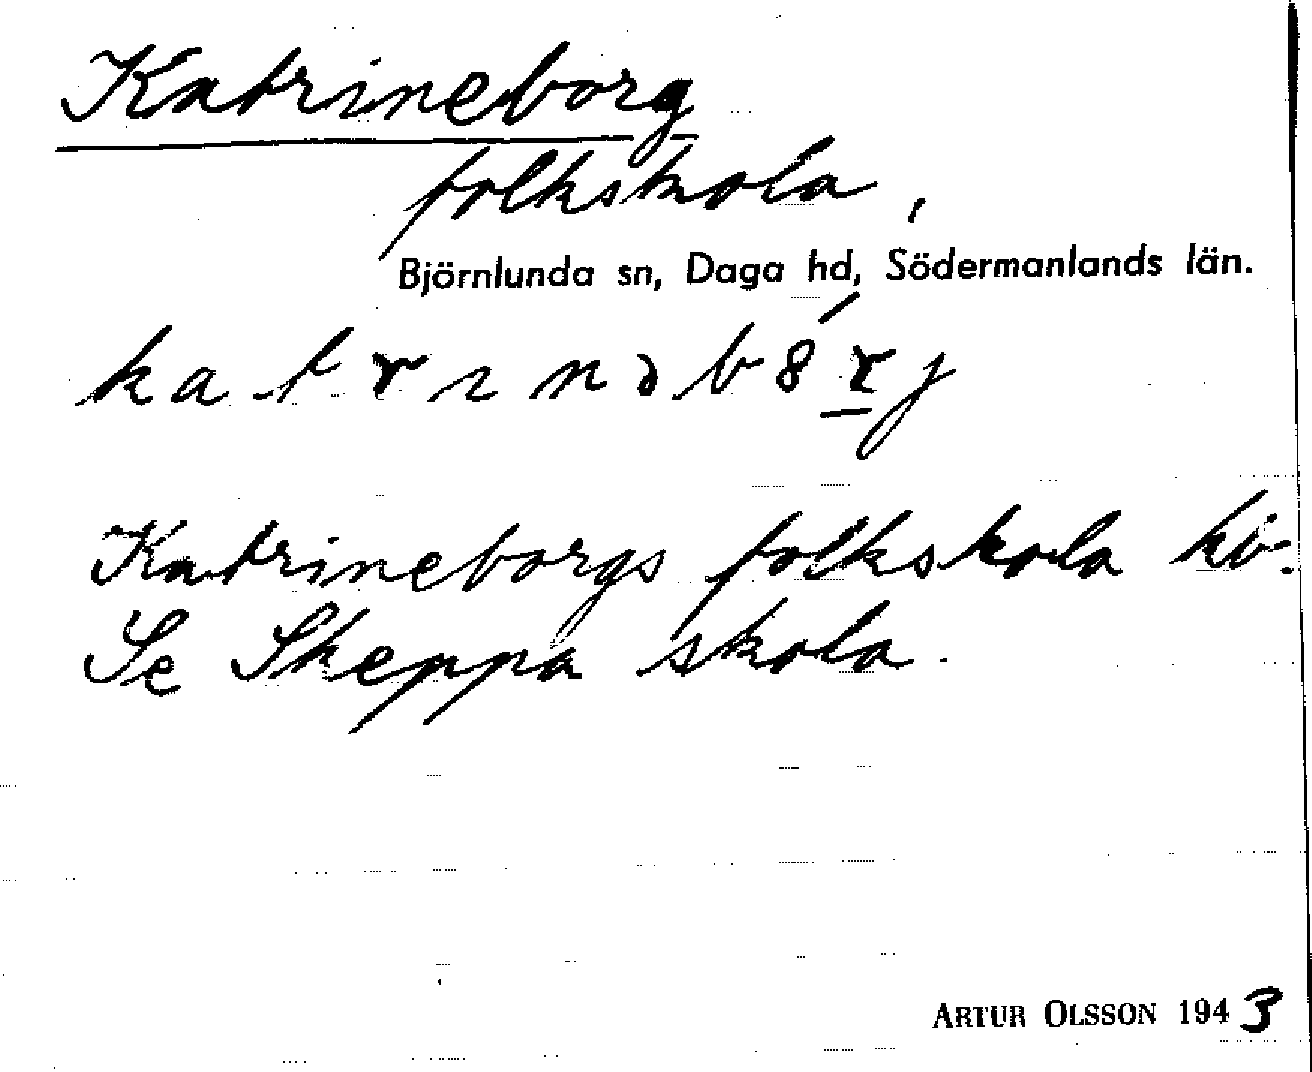 Katrineborg
folkskola,
Björnlunda sn, Daga hd, Södermanlands län.
k a t r ı n ə b 8́ r̲ j
Katrineborgs folkskola kö:
Se Skeppa skola.
ARTUR OLSSON 1943